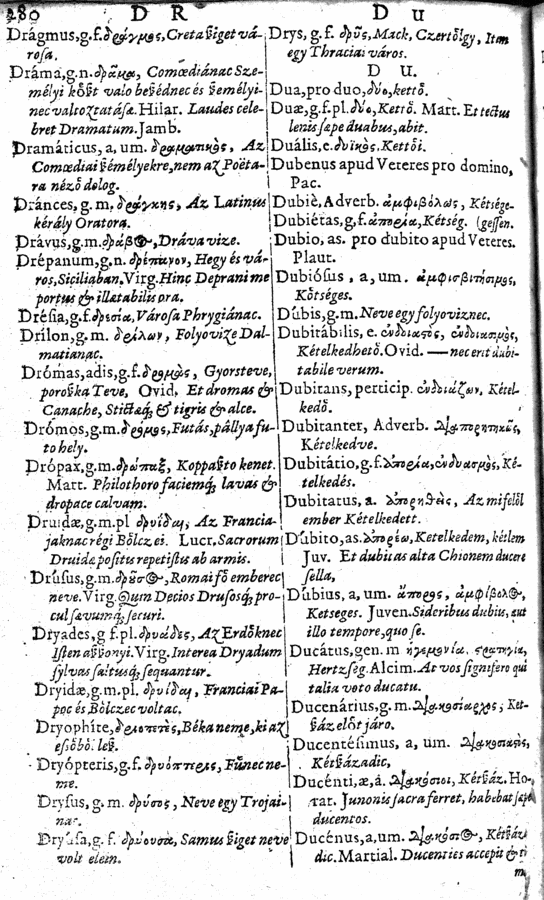 280 D R
Drágmus,g.f.δράγμος,Creta ſziget vá-
roſa.
Dráma,g.n.δρᾶμα, Comœdiánac Sze-
mélyi kőzt valo beſzédnec és ſzemélyi-
nec valtoztatáſa.Hilar. Laudes cele-
bret Dramatum.Jamb.
Dramáticus, a, um. δραματικὸς, Az
Comœdiai ſzémélyekre,nem az Poëta-
ra néző dolog.
Dránces, g. m. δράγκης, Az Latinus
kérály Oratora.
Drávus,g.m.δράβος,Dráva vize.
Drépanum,g.n. δρέπανον, Hegy és vá-
ros,Siciliaban.Virg.Hinc Deprani me
portus & illætabilis ora.
Dréſia,g.f.δρεσία,Városa Phrygiánac.
Drílon, g. m. δρίλων, Folyovize Dal-
matianac.
Drómas,adis,g.f.δρομὰς, Gyorsteve,
poroſzka Teve, Ovid. Et dromas &
Canache, Sticteq́; & tigris & alce.
Drómos,g.m.δρόμος,Futás,pállya fu-
to hely.
Drópax,g.m.δρώπαξ, Koppaſzto kenet.
Mart. Philothoro faciemq́; lavas &
dropace calvam.
Druidæ,g.m.pl δρυίδαι, Az Francia-
jaknac régi Bőlczei. Lucr.Sacrorum
Druidæ poſitus repetiſtis ab armis.
Drúſus,g.m.δροῦσος,Romai fő emberec
neve.Virg.Quin Decios Druſosq́; pro-
cul ſævumq́; ſecuri.
Dryades,g f.pl.δρυάδες, Az Erdőknec
Iſten aſſzonyi.Virg.Interea Dryadum
ſylvas ſaltusq́; ſequantur.
Dryidæ,g.m.pl. δρυίδαι, Franciai Pa-
poc és Bőlczec voltac.
Dryophíte,δρυοπετὲς,Béka neme,ki az
eſsőből leſz.
Dryópteris,g.f.δρυόπτερις, Fűnec ne-
me.
Dryſus,g. m. δρύσος, Neve egy Trojai-
nac.
Dryúſa,g. f. δρύουσα, Samus ſziget neve
volt elein.
D u
Drys, g. f. δρῦς, Mack, Czertőlgy, Item
egy Thraciai város.
D U.
Dua,pro duo,δύο,kettő.
Duæ,g.f.pl.δύο,Kettő. Mart. Et tectus
lenis ſæpe duabus,abit.
Duális,e.δυϊκὸς.Kettői.
Dubenus apud Veteres pro domino,
Pac.
Dubiè, Adverb. ἀμφιβόλως, Kétsége-
Dubiétas,g,f.ἀπορία,Kétség. (geſſen.
Dubio, as. pro dubito apud Veteres.
Plaut.
Dubióſus, a, um. ἀμφισβητήσιμος,
Kőtséges.
Dúbis,g.m.Neve egy folyoviznec.
Dubitábilis, e. ἐνδοιαστὸς, ἐνδοιασμὸς,
Kételkedhető.Ovid. —nec erit dubi-
tabile verum.
Dubitans, perticip. ἐνδοιάζων, Kétel-
kedő.
Dubitanter, Adverb. διαπορητικῶς,
Kételkedve.
Dubitátio,g.f.ἀπορία,ἐνδυασμὸς, Ké-
telkedés.
Dubitatus, a. ἀπορηθεὶς, Az mifelől
ember Kételkedett.
Dúbito,as.ἀπορέω,Ketelkedem, kétlem
Juv. Et dubitas alta Chionem ducere
ſella,
Dúbius, a, um. ἄπορος, ἀμφίβολος,
Ketseges. Juven.Sideribus dubiis, aut
illo tempore,quo ſe.
Ducátus,gen. m ἡγεμονία, στρατηγία,
Hertzſég.Alcim.At vos ſignifero qui
talia voto ducatu.
Ducenárius,g.m.διακοσίαρχος, Ket-
ſzáz előt járo.
Ducentéſimus, a, um. διακοσιοστὸς,
Kétſzázadic,
Ducénti,æ,á. διακόσιοι, Kétſzáz. Ho-
rat. Junonis ſacra ferret, habebat ſæpe
ducentos.
Ducénus,a,um. διακόσιος, Kétſzáza
dic.Martial. Ducenties accepit & ti